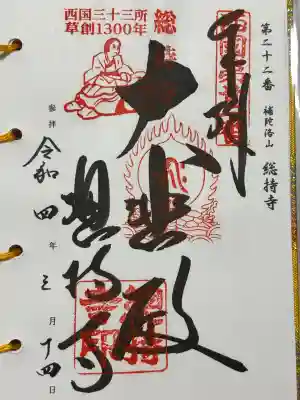 西国三十三所
草創1300年
総
第二十二番 補陀洛山 総持寺
奉拝
大悲殿
総持寺
参拝 令和四年三月十四日